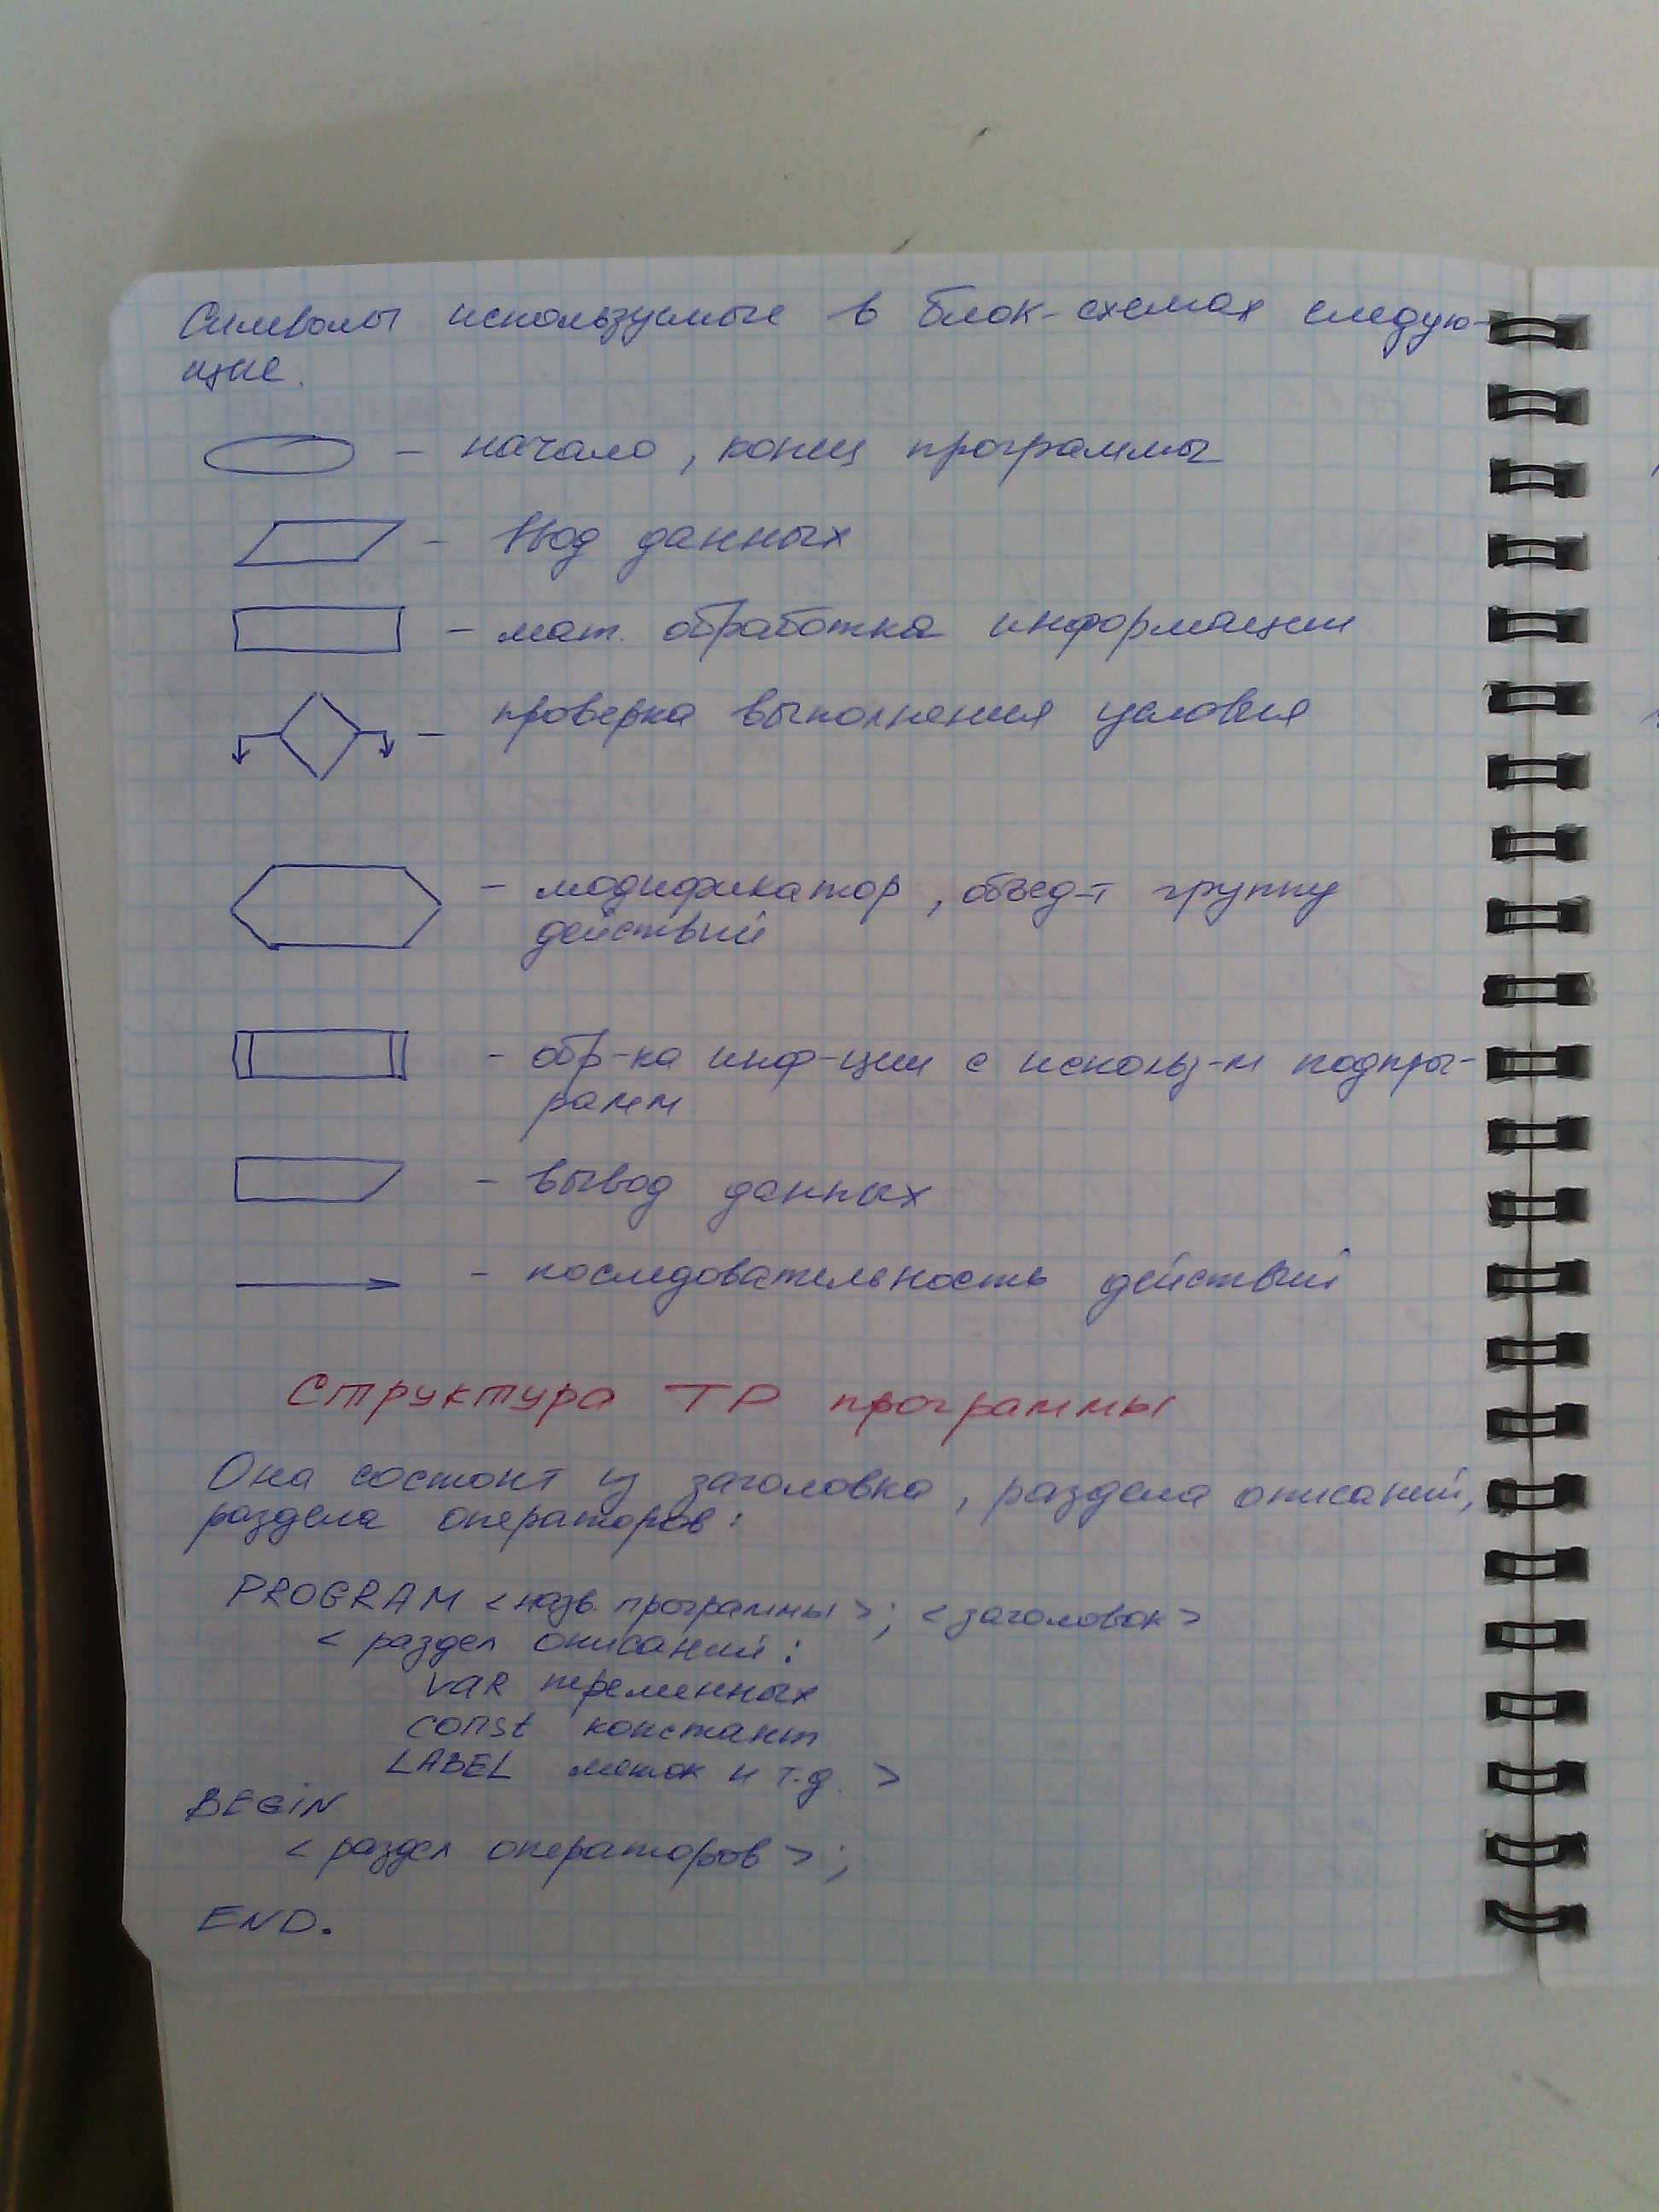 Символы используемые в блок-схемах следую-
щие.
– начало, конец программы
– Ввод данных
– мат. обработка информации
– проверка выполнения условия
– модификатор, объед-т группу
действий
– обр-ка инф-ции с использ-м подпрог-
рамм
– вывод данных
– последовательность действий
Структура TP программы
Она состоит из заголовка, раздела описаний,
раздела операторов:
PROGRAM <назв. программы>; <заголовок>
<раздел описаний:
VAR переменных
const констант
LABEL меток и т.д. >
BEGiN
<раздел операторов>;
END.